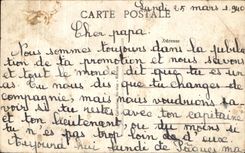 Lundi 25 mars 1940
CARTE POSTALE
Cher papa.
Adresse
Nous sommes toujours dans la jubilation
de ta promotion et nous savons
et tout le monde dit que tu es un
as. Tu nous dis que tu changes de
compagnie, mais nous voudrions savoir
si tu restes avec ton capitaine
et ton lieutenant, ou du moins si
tu n'es pas trop loin de d'eux
aujourd'hui lundi de Pâques